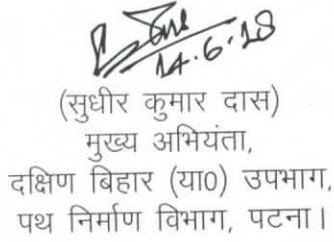 14.6.18
(सुधीर कुमार दास)
मुख्य अभियंता,
दक्षिण बिहार (या0) उपभाग,
पथ निर्माण विभाग, पटना।